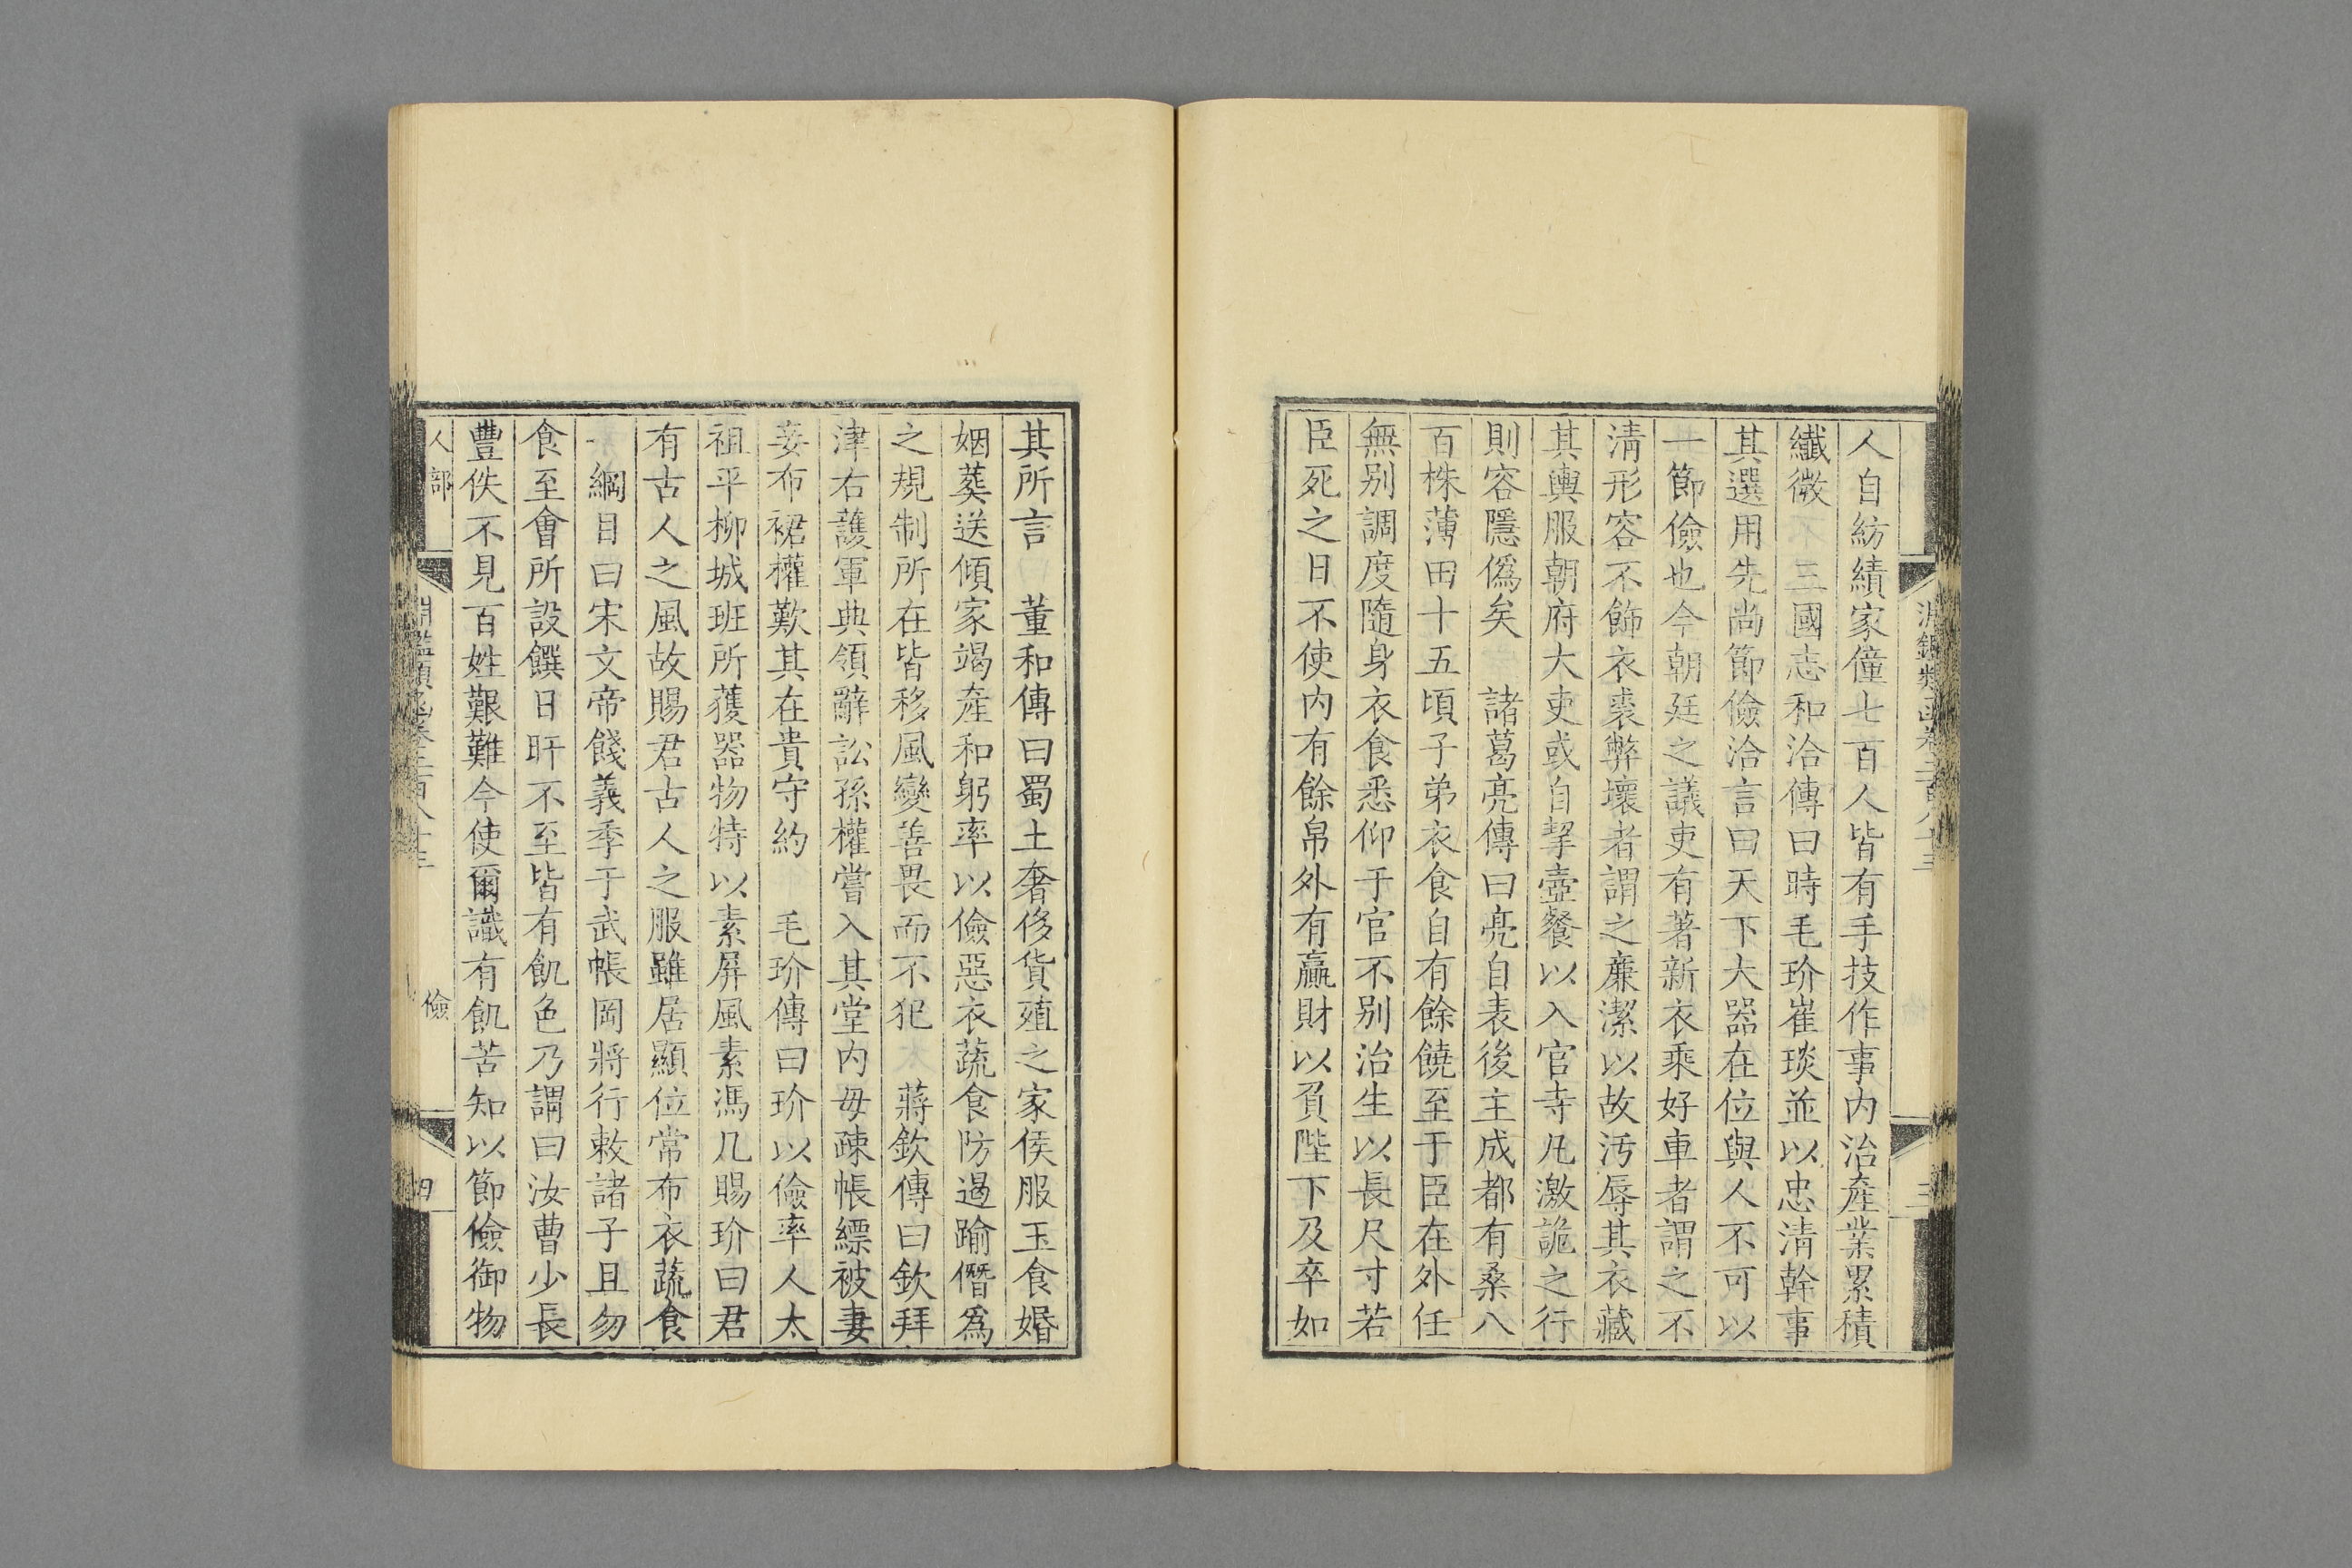 人自紡績家僮七百人皆有手技作事內治產業累積
纖微　三國志和洽傳曰時毛玠崔琰並以忠清幹事
其選用先尚節儉洽言曰天下大器在位與人不可以
一節儉也今朝廷之議吏有著新衣乘好車者謂之不
清形容不飾衣裘弊壞者謂之廉潔以故汚辱其衣藏
其輿服朝府大吏或自挈壺餐以入官寺凡激詭之行
則容隱僞矣　諸葛亮傳曰亮自表後主成都有桑八
百株薄田十五頃子弟衣食自有餘饒至于臣在外任
無别調度隨身衣食悉仰于官不别治生以長尺寸若
臣死之日不使内有餘帛外有贏財以負陛下及卒如
其所言　董和傳曰蜀土奢侈貨殖之家侯服玉食婚
姻葬送傾家竭產和躬率以儉惡衣蔬食防遏踰僭爲
之規制所在皆移風變善畏而不犯　蔣欽傳曰欽拜
津右護軍典領辭訟孫權嘗入其堂内母疎帳縹被妻
妾布裙權歎其在貴守約　毛玠傳曰玠以儉率人太
祖平柳城班所獲器物特以素屏風素馮几賜玠曰君
有古人之風故賜君古人之服雖居顯位常布衣蔬食
綱目曰宋文帝餞義季于武帳岡將行敕諸子且勿
食至會所設饌日旰不至皆有飢色乃謂曰汝曹少長
豐佚不見百姓艱難今使爾識有飢苦知以節儉御物
人部
淵鑑類函卷二百八十三
儉
四